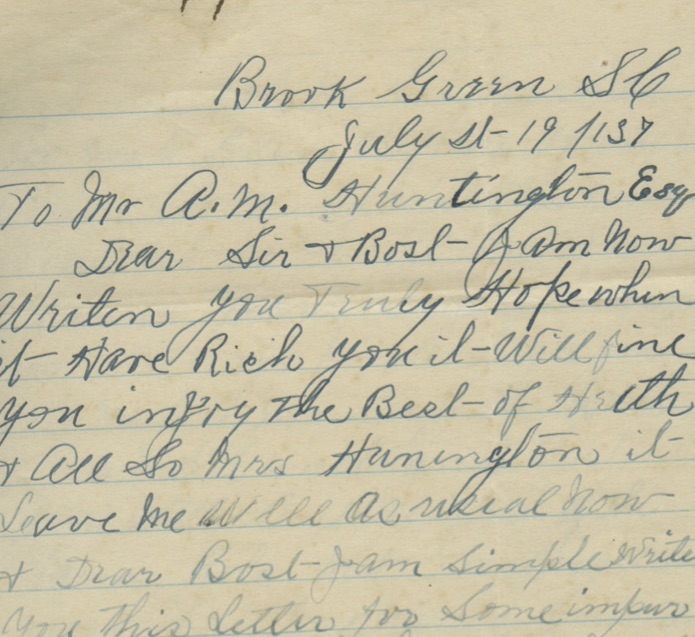 Brook Green SC
July st-19/137
To Mr A.M. Huntington Esq
Dear Sir + Bost- I am Now
Writen you Truly Hope when
it- Have Rich you it-Will fine
you injoy the Best-of Health
+ All So Mrs Hunington it-
Leave Me Well As usual Now
+ Dear Bost-I am Simple write
You this Letter for Some impur